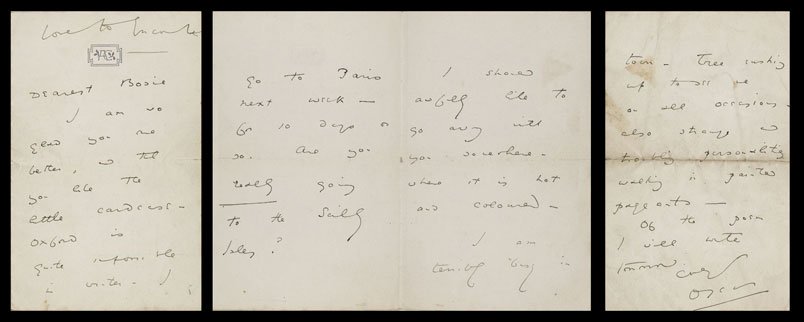 love to Encombe
Dearest Bosie
I am so
glad you are
better, and that
you like the
little card case –
Oxford is
quite impossible
in winter – I
go to Paris
next week –
for 10 days or
so. Are you
really going
to the Scilly
Isles?
I should
awfully like to
go away with
you somewhere –
where it is hot
and coloured –
I am
terribly busy in
town – Tree rushing
up to see me
on all occasions –
also strange and
troubling personalities
walking in painted
pageants –
Of the poem
I will write
tomorrow
Oscar